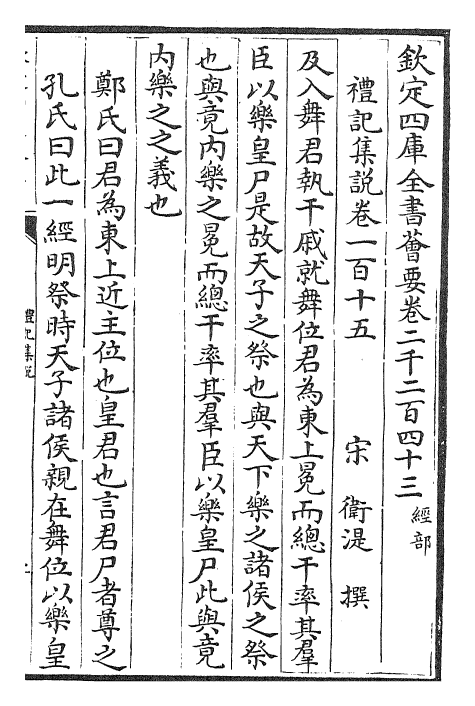 欽定四庫全書薈要卷二千二百四十三 經部
禮記集說卷一百十五 宋 衛湜 撰
及入舞君執干戚就舞位君為東上冕而總干率其羣
臣以樂皇尸是故天子之祭也與天下樂之諸侯之祭
也與竟内樂之冕而總干率其羣臣以樂皇尸此與竟
内樂之之義也
鄭氏曰君為東上近主位也皇君也言君尸者尊之
孔氏曰此一經明祭時天子諸侯親在舞位以樂皇
禮記集說